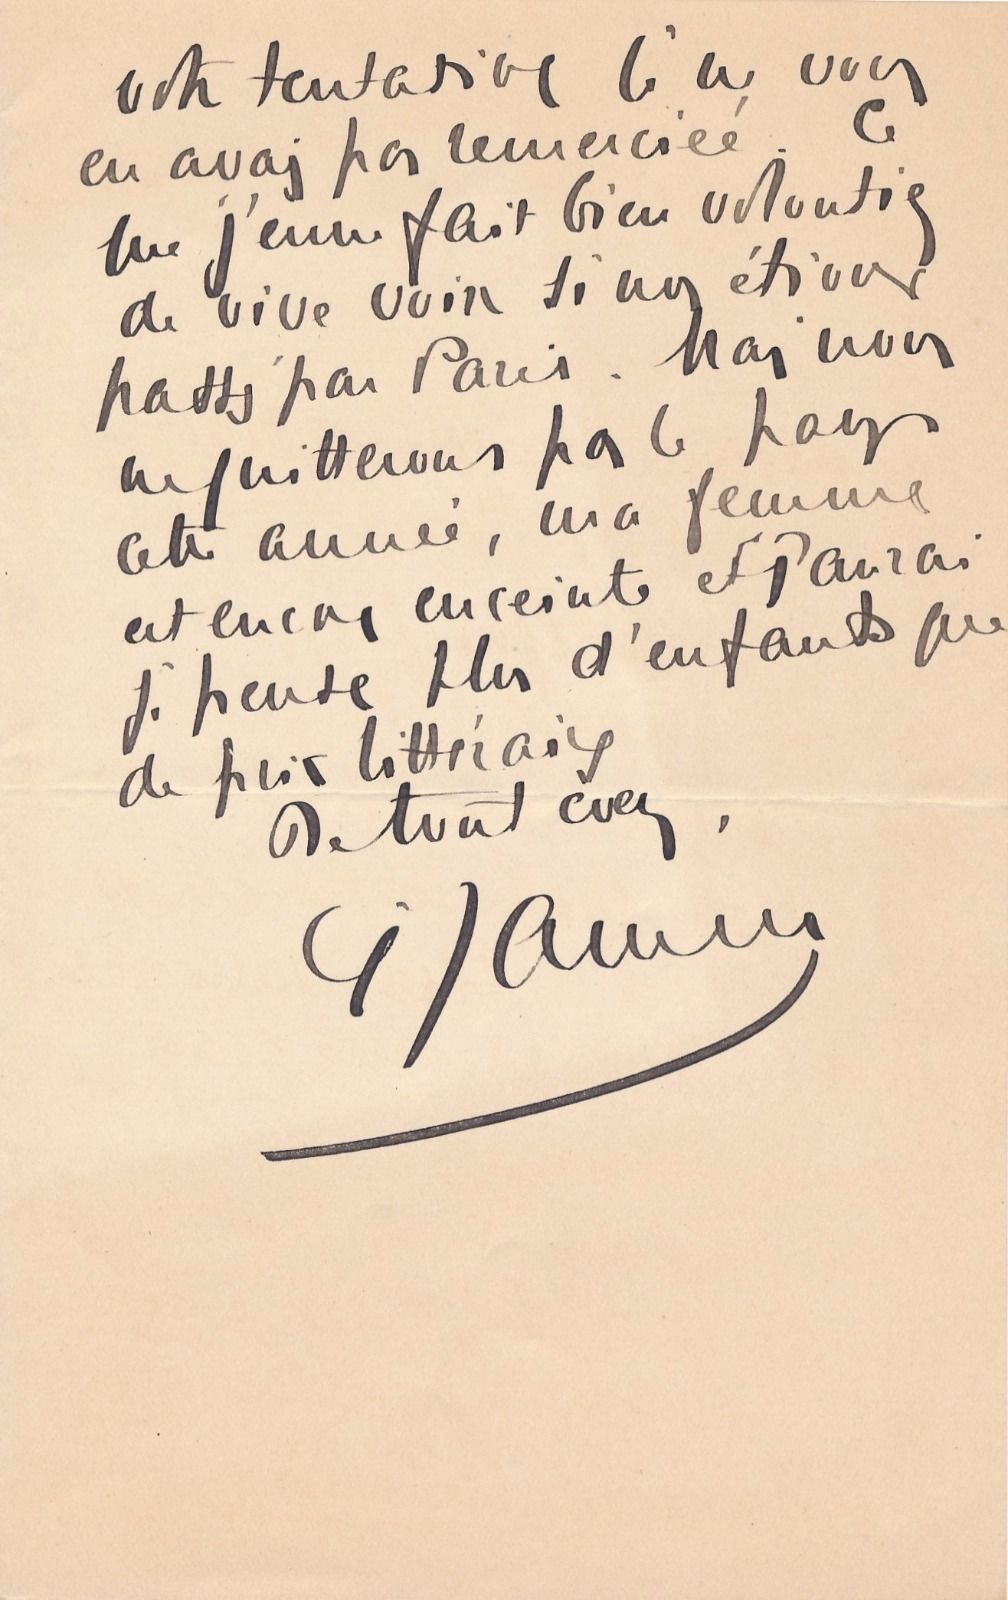 votre tentative si je ne vous
en avais pas remerciée. Ce
que j'eusse fait bien volontiers
de vive voix si nous étions
passés par Paris. Mais nous
ne quitterons pas le pays
cette année, ma femme
est encore enceinte et j'aurai
je pense plus d'enfants que
de prix littéraires
De tout cœur,
Jammes